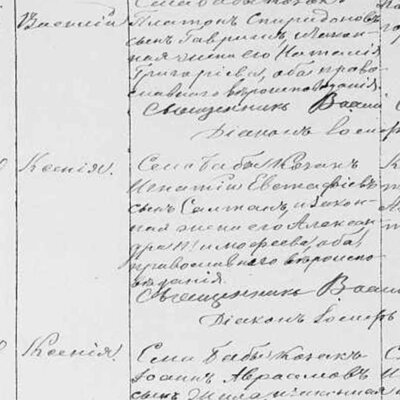 Села Бабы козакъ
Василій. Платонъ Спиридоновъ
сынъ Гавришъ, и закон-
ная жена его Наталія
Григоріева, оба право-
славнаго вѣроисповѣданія.
Священникъ
Діаконъ Іосифъ
Ксенія. Села Бабы Козакъ
Игнатій Евстафіевъ
сынъ Салтанъ, и закон-
ная жена его Алексан-
дра Тимофеева, оба
православнаго вѣроиспо-
вѣданія.
Священникъ
Діаконъ Іосифъ
Ксенія. Села Бабы Козакъ
Іоаннъ Аврaамовъ
сынъ и законная